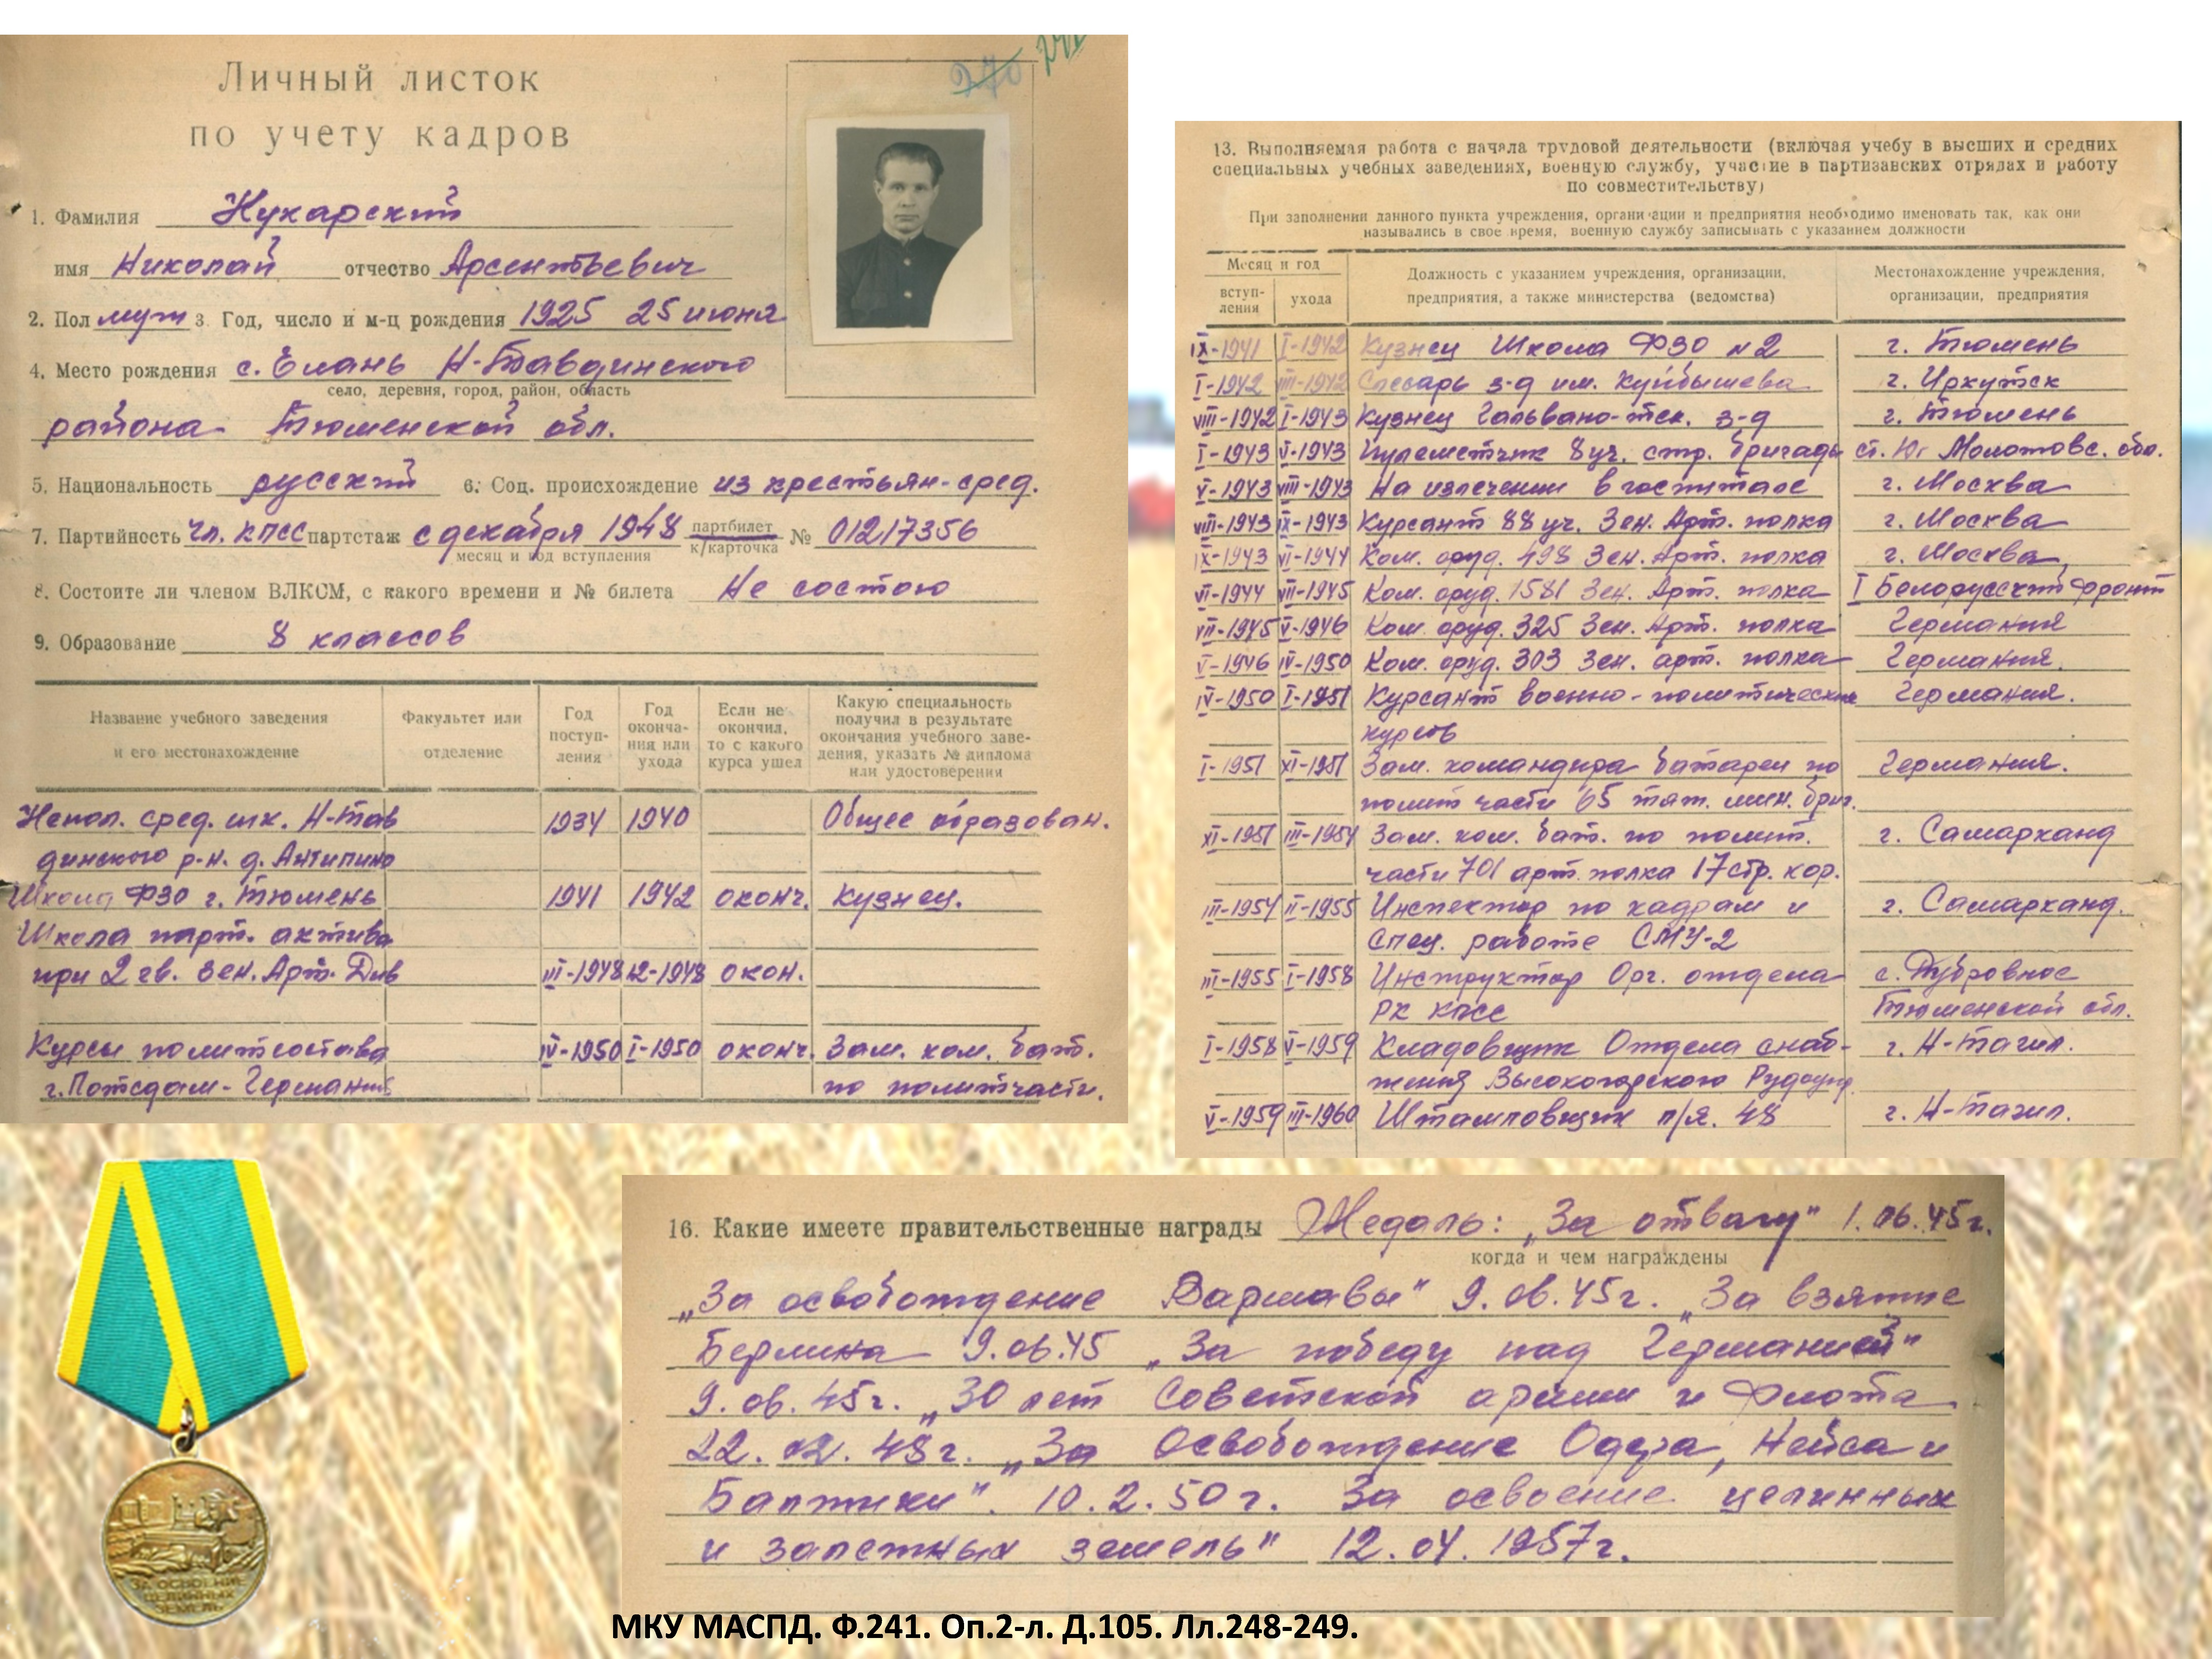 Личный листок
по учету кадров
1. Фамилия Кухарский
имя Николай отчество Арсентьевич
2. Пол муж 3. Год, число и м-ц рождения 1925 25 июня
4. Место рождения с. Елань Н-Тавдинского
село, деревня, город, район, область
района Тюменской обл.
5. Национальность русский 6. Соц. происхождение из крестьян-сред.
7. Партийность чл. КПСС партстаж с декабря 1948 партбилет № 01217356
месяц и год вступления к/карточка
8. Состоите ли членом ВЛКСМ, с какого времени и № билета Не состою
9. Образование 8 классов
Название учебного заведения и его местонахождение Факультет или отделение Год поступ-ления Год оконча-ния или ухода Если не окончил, то с какого курса ушел Какую специальность получил в результате окончания учебного заве-дения, указать № диплома или удостоверения
Непол. сред. шк. Н-Тав 1934 1940 Общее образован.
динского р-н. д. Антипино
Школа ФЗО г. Тюмень 1941 1942 оконч. Кузнец.
Школа парт. актива
при 2 гв. Зен. Арт. Див III-1948 12-1948 окон.
Курсы политсостава IV-1950 I-1950 оконч. Зам. ком. бат.
г. Потсдам-Германия по политчасти.
13. Выполняемая работа с начала трудовой деятельности (включая учебу в высших и средних
специальных учебных заведениях, военную службу, участие в партизанских отрядах и работу
по совместительству)
При заполнении данного пункта учреждения, организации и предприятия необходимо именовать так, как они
назывались в свое время, военную службу записывать с указанием должности
Месяц и год
вступ-ления ухода Должность с указанием учреждения, организации, предприятия, а также министерства (ведомства) Местонахождение учреждения, организации, предприятия
IX-1941 I-1942 Кузнец Школа ФЗО №2 г. Тюмень
I-1942 VIII-1942 Слесарь з-д им. Куйбышева г. Иркутск
VIII-1942 I-1943 Кузнец Гальвано-тех. з-д г. Тюмень
I-1943 V-1943 Пулеметчик 8 уч. стр. бригады ст. Юг Молотовс. обл.
V-1943 VIII-1943 На излечении в госпитале г. Москва
VIII-1943 IX-1943 Курсант 88 уч. Зен. Арт. полка г. Москва
IX-1943 VI-1944 Ком. оруд. 498 Зен. Арт. полка г. Москва
VI-1944 VII-1945 Ком. оруд. 1581 Зен. Арт. полка I Белорусский фронт
VII-1945 V-1946 Ком. оруд. 325 Зен. Арт. полка Германия
V-1946 IV-1950 Ком. оруд. 303 Зен. арт. полка Германия.
IV-1950 I-1951 Курсант военно-политических Германия.
курсов
I-1951 XI-1951 Зам. командира батареи по Германия.
полит части 65 тяж. мин. бриг.
XI-1951 III-1954 Зам. ком. бат. по полит. г. Самарканд
части 701 арт. полка 17 стр. кор.
III-1954 II-1955 Инспектор по кадрам и г. Самарканд.
спец. работе СМУ-2
III-1955 I-1958 Инструктор Орг. отдела с. Дубровное
РК КПСС Тюменской обл.
I-1958 V-1959 Кладовщик Отдела снаб- г. Н-Тагил.
жения Высокогорского Рудоупр.
V-1959 III-1960 Штамповщик п/я. 48 г. Н-Тагил.
16. Какие имеете правительственные награды Медаль: „За отвагу" 1.06.45г.
когда и чем награждены
„За освобождение Варшавы" 9.06.45г. „За взятие
Берлина 9.06.45 „За победу над Германией"
9.06.45г. „30 лет Советской армии и Флота
22.02.48г. „За Освобождение Одера, Нейса и
Балтики". 10.2.50г. За освоение целинных
и залежных земель" 12.04.1957г.
ЗА ОСВОЕНИЕ
ЦЕЛИННЫХ
ЗЕМЕЛЬ
МКУ МАСПД. Ф.241. Оп.2-л. Д.105. Лл.248-249.